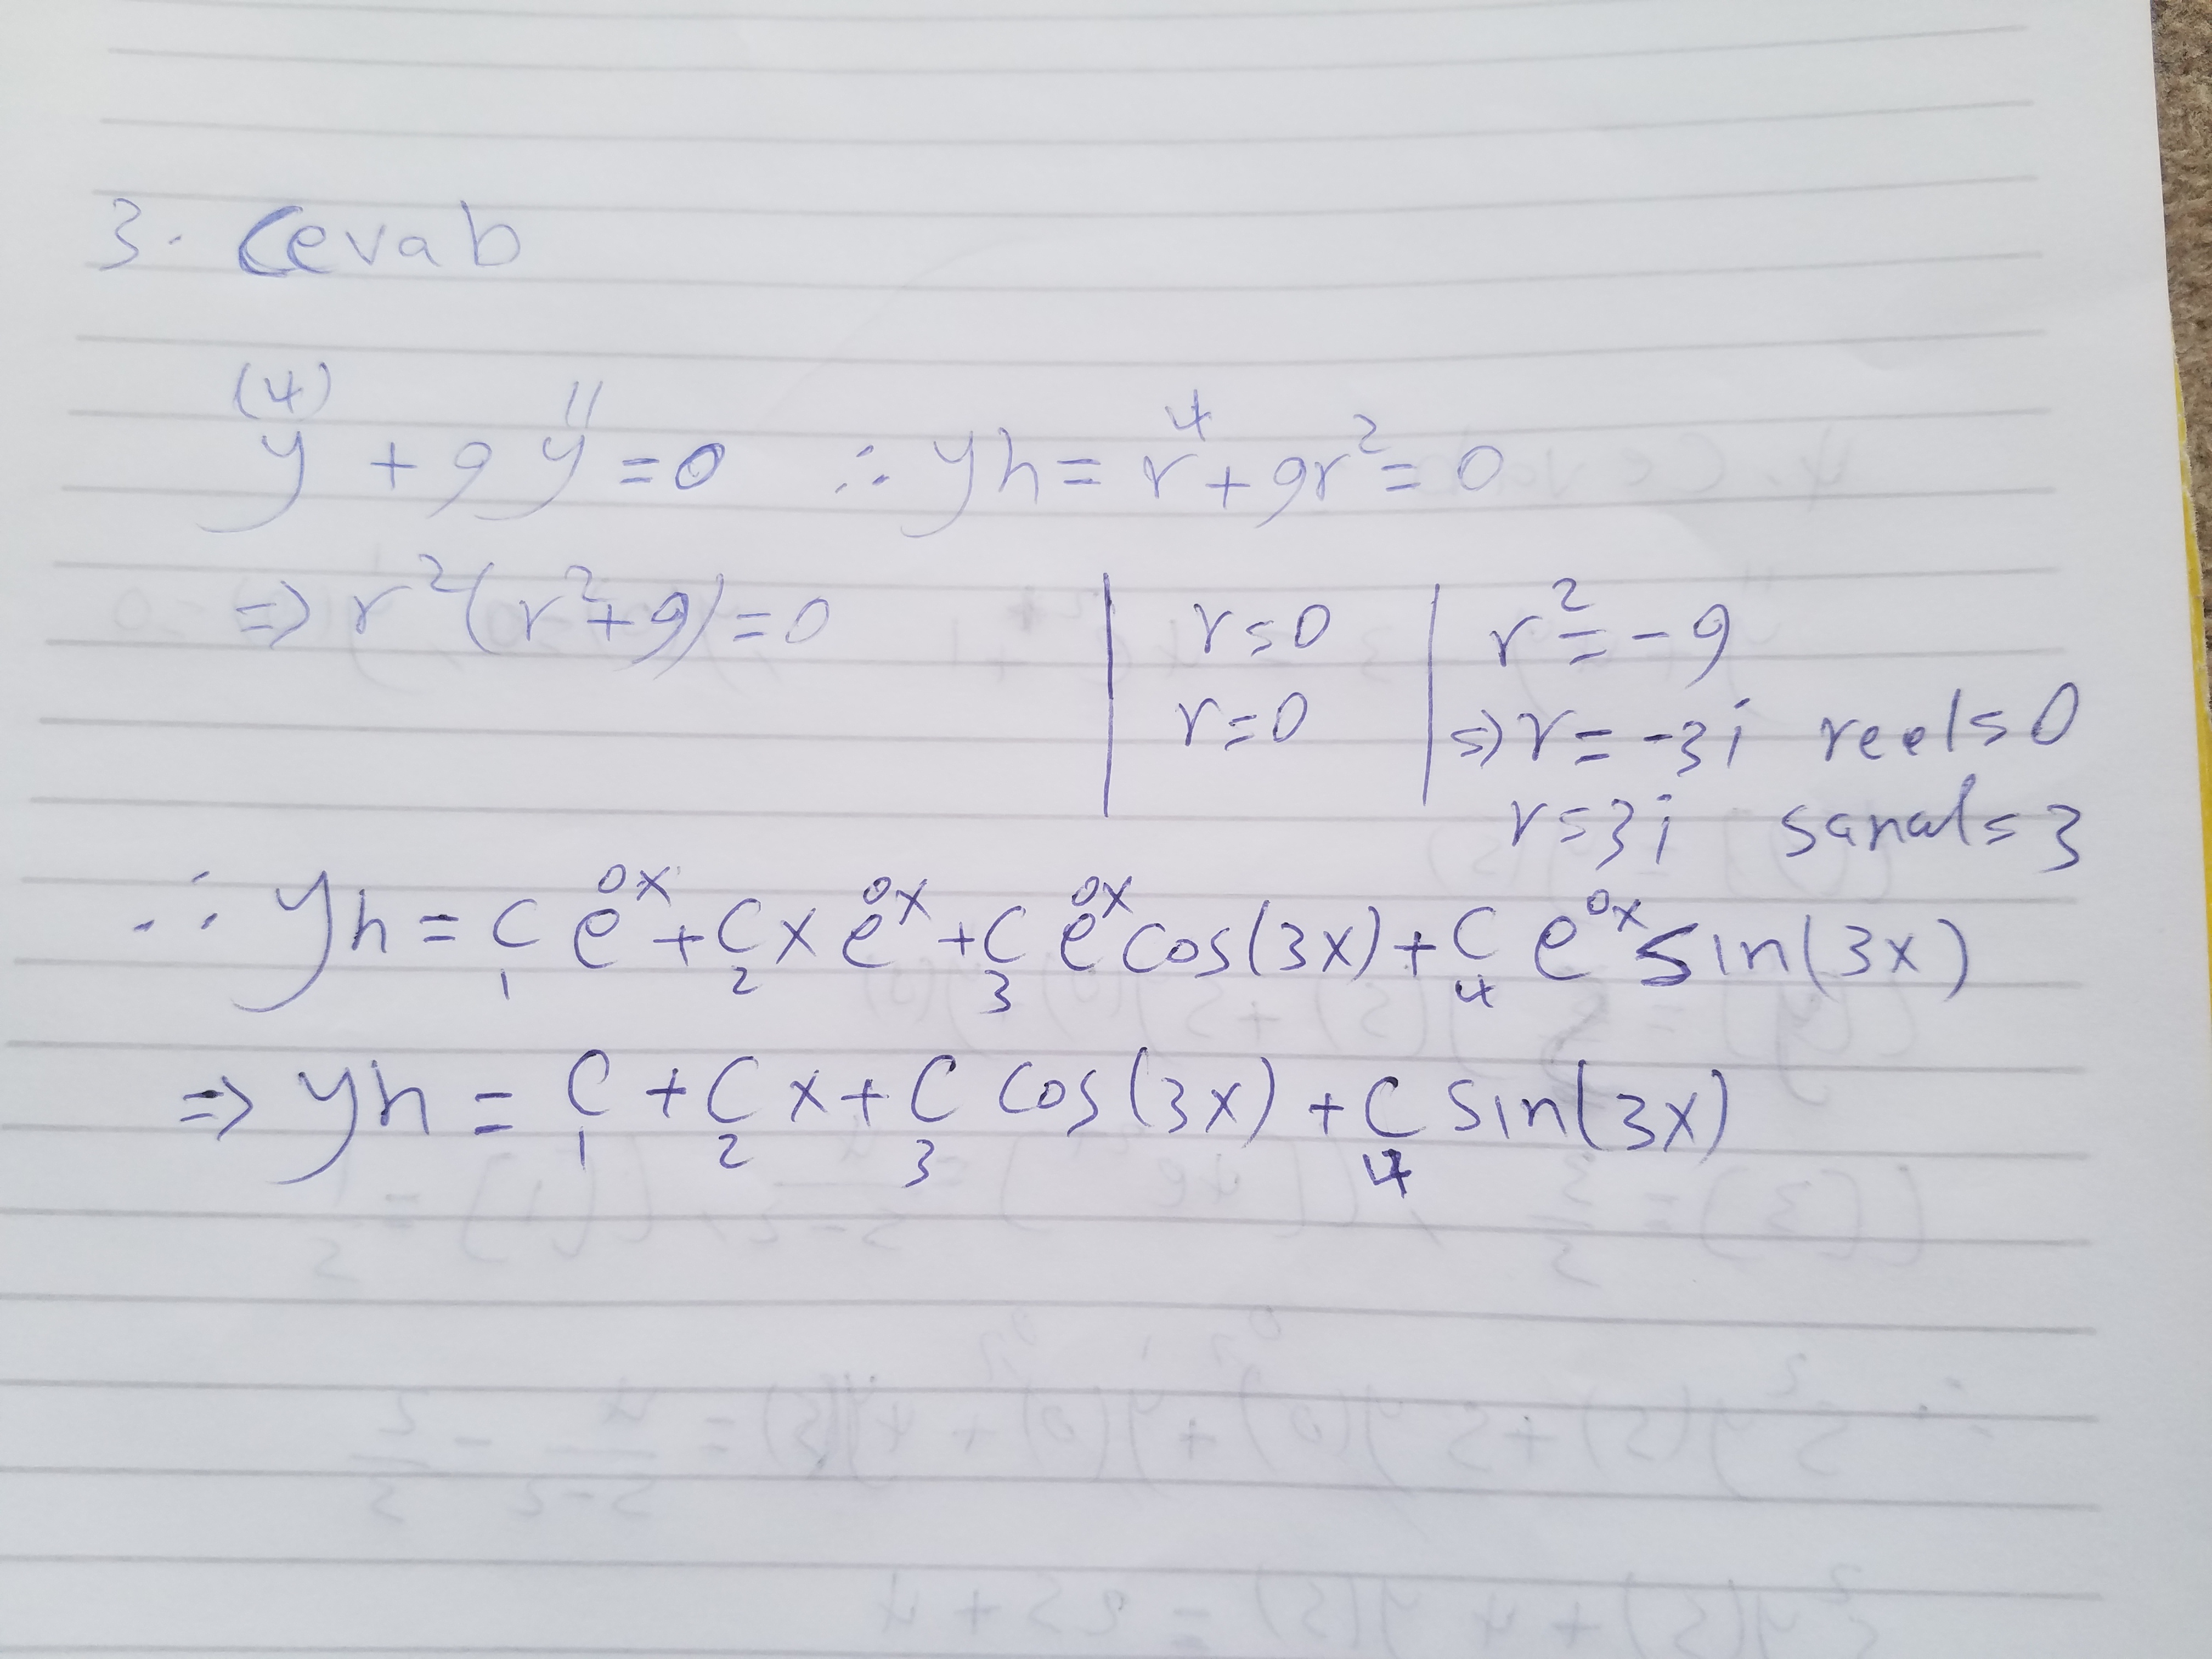 3. Cevab
y⁽⁴⁾ + 9y'' = 0 ∴ yh = r⁴ + 9r² = 0
⇒ r²(r² + 9) = 0 | r = 0 | r² = -9
r = 0 | ⇒ r = -3i reel = 0
r = 3i sanal = 3
∴ yh = C₁ e^0x + C₂ x e^0x + C₃ e^0x cos(3x) + C₄ e^0x sin(3x)
⇒ yh = C₁ + C₂ x + C₃ cos(3x) + C₄ sin(3x)